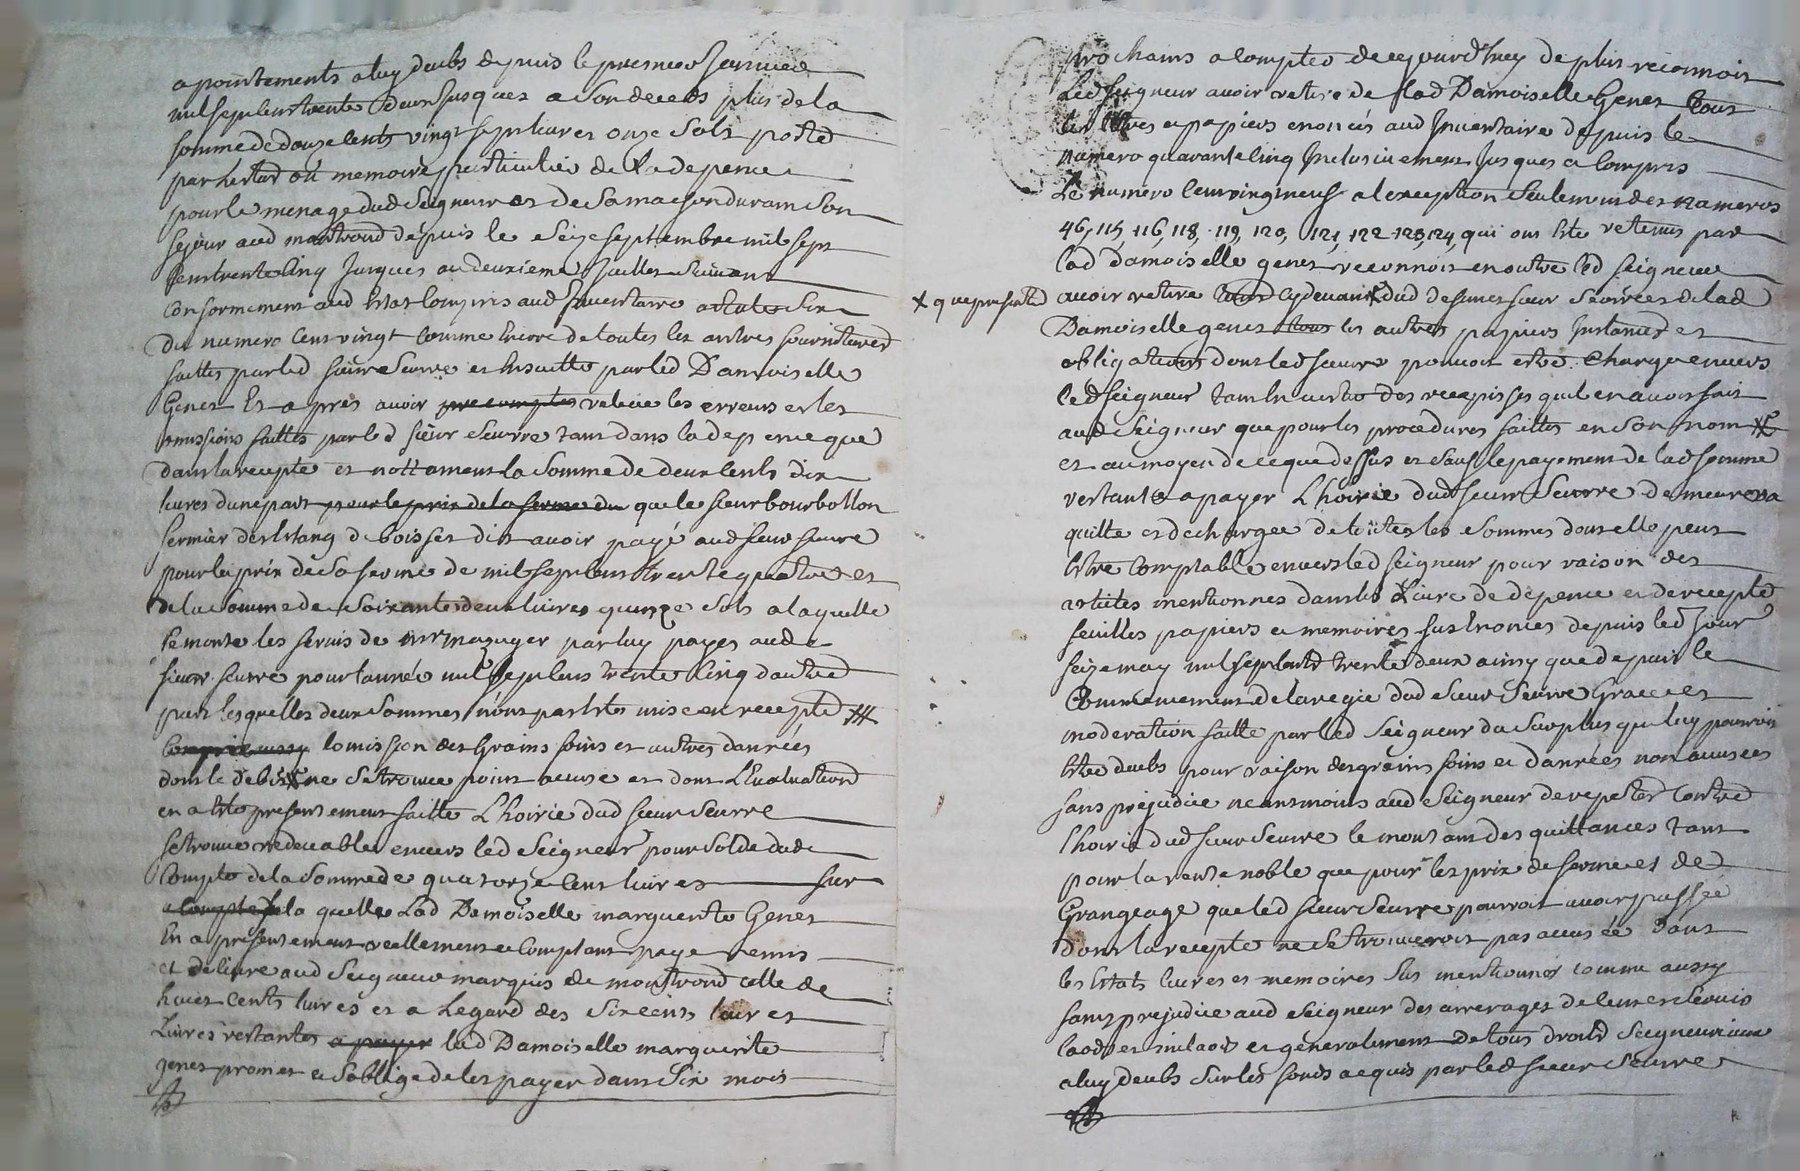 apointements a luy deubs depuis le premier janvier
mil sept cent trente deux jusques a son deceds plus de la
somme de douze cents vingt sept livres onze sols porté
par lestat ou memoire particulier de la depence
pour le menage dud Seigneur et de sa maison durant son
sejour aud montrond depuis le seize septembre mil sept
cent trente cinq jusques au deuxieme juillet suivant
conformement aud estat compris aud Inventaire
du numero cent vingt comme encore de toutes les autres fournitures
faittes par led sieur Seurre et ensuitte par led Damoiselle
Genet Et apres avoir pre compter releve les erreurs et les
omissions faittes par led sieur Seurre tant dans la depence que
dans la recepte et nottament la somme de deux cents dix
livres dune part pour le prix de la ferme du que le sieur bourbollon
fermier de lestang de boisset dit avoir payé aud sieur Seurre
pour le prix de sa ferme de mil sept cent trente quatre et
de la somme de soixante deux livres quinze sols a laquelle
se monte les servis de mr mazuyer par luy payes aud
sieur Seurre pour lannée mil sept cens trente cinq dautre
part lesquelles deux sommes nont pas estes mise en recepte
comprie aussy lomission des grains foins et autres danrées
dont le debit ne se trouve point accusé et dont lEvaluation
en a esté presentement faitte Lhoirie dud sieur Seurre
se trouve redevable envers led Seigneur pour solde dud
compte de la somme de quatorze cent livres sur
a compte de la quelle Lad Damoiselle marguerite Genet
En a presentement reellement et comptant payé remis
et delivre aud Seigneur marquis de montrond celle de
huict cents livres et a legard des six cents livres
Livres restantes a payer lad Damoiselle marguerite
genet promet et soblige de les payer dans six mois
prochains a compter de cejourdhuy de plus reconnoit
Led Seigneur avoir retiré de lad Damoiselle Genet tous
les titres et papiers enoncés aud Inventaire depuis le
numero quarante cinq Inclusivement jusques a compris
Le numero cent vingt neuf a lexception seulement des numeros
46, 115, 116, 118, 119, 120, 121, 122 123, 124, qui ont été retenus par
lad damoiselle genet reconnoit en outre led seigneur
X que presente
avoir retiré tant cy devant X dud deffunct sieur Seurre et de lad
Damoiselle genet tous les autres papiers Instances et
obligations dont led sieur pouvoit estre chargé envers
led Seigneur tant en vertu des recepisses quil en avoit fait
aud Seigneur que pour les procedures faittes en son nom
et au moyen de ce que dessus et sauf le payement de lad somme
restante a payer Lhoirie dud sieur Seurre demeurera
quitte et dechargée de toutes les sommes dont elle peut
Etre comptable envers led seigneur pour raison des
articles mentionnes dans les Livre de depence et de recepte
feuilles papiers et memoires sus enonces depuis led jour
seize may mil sept cent trente deux ainsy que depuis le
Commencement de la regie dud sieur Seurre Grace et
moderation faitte par led Seigneur du surplus que luy pourroit
Etre deubs pour raison des grains foins et danrées non accusées
sans prejudice neantmoins aud Seigneur de repeter contre
lhoirie dud sieur Seurre le montant des quittances tant
pour la rente noble que pour les prix de fermes et de
Grangeage que led sieur Seurre pourroit avoir passée
dont la recepte ne se trouveroit pas accusée Dans
les Etats livres et memoires sus mentionnes comme aussy
sans prejudice aud Seigneur des arrerages de cens et servis
laods et milaods et generalement de tous droits Seigneuriaux
a luy deubs sur les fonds acquis par led sieur Seurre